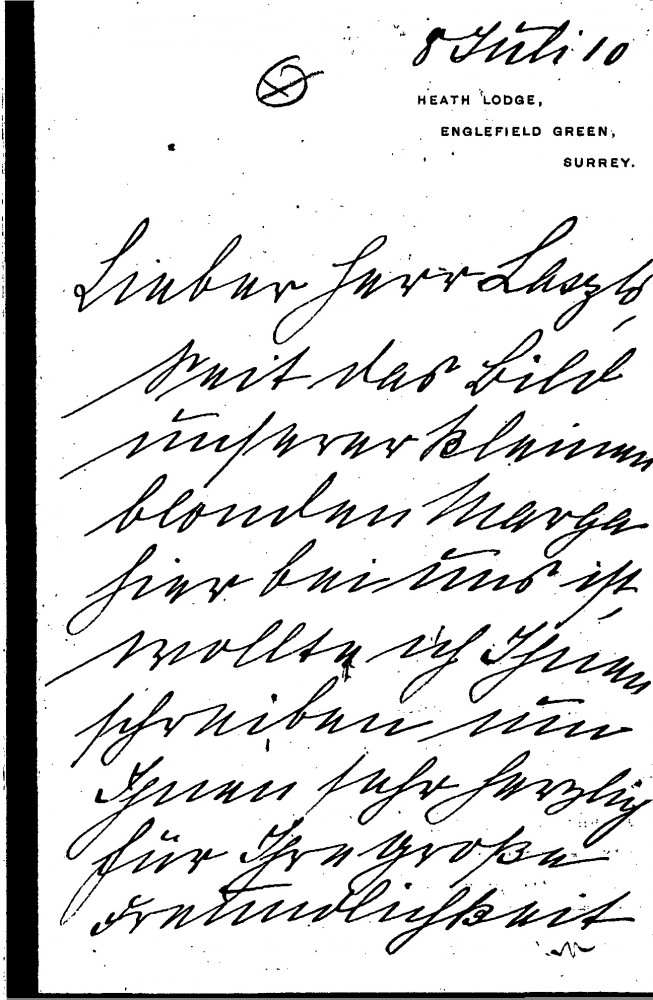 8 Juli 10
HEATH LODGE,
ENGLEFIELD GREEN,
SURREY.
Lieber Herr Laszlo,
Seit das Bild
unserer kleinen
blonden Marga
hier bei uns ist,
wollte ich Ihnen
schreiben um
Ihnen sehr herzlich
für Ihre große
Freundlichkeit